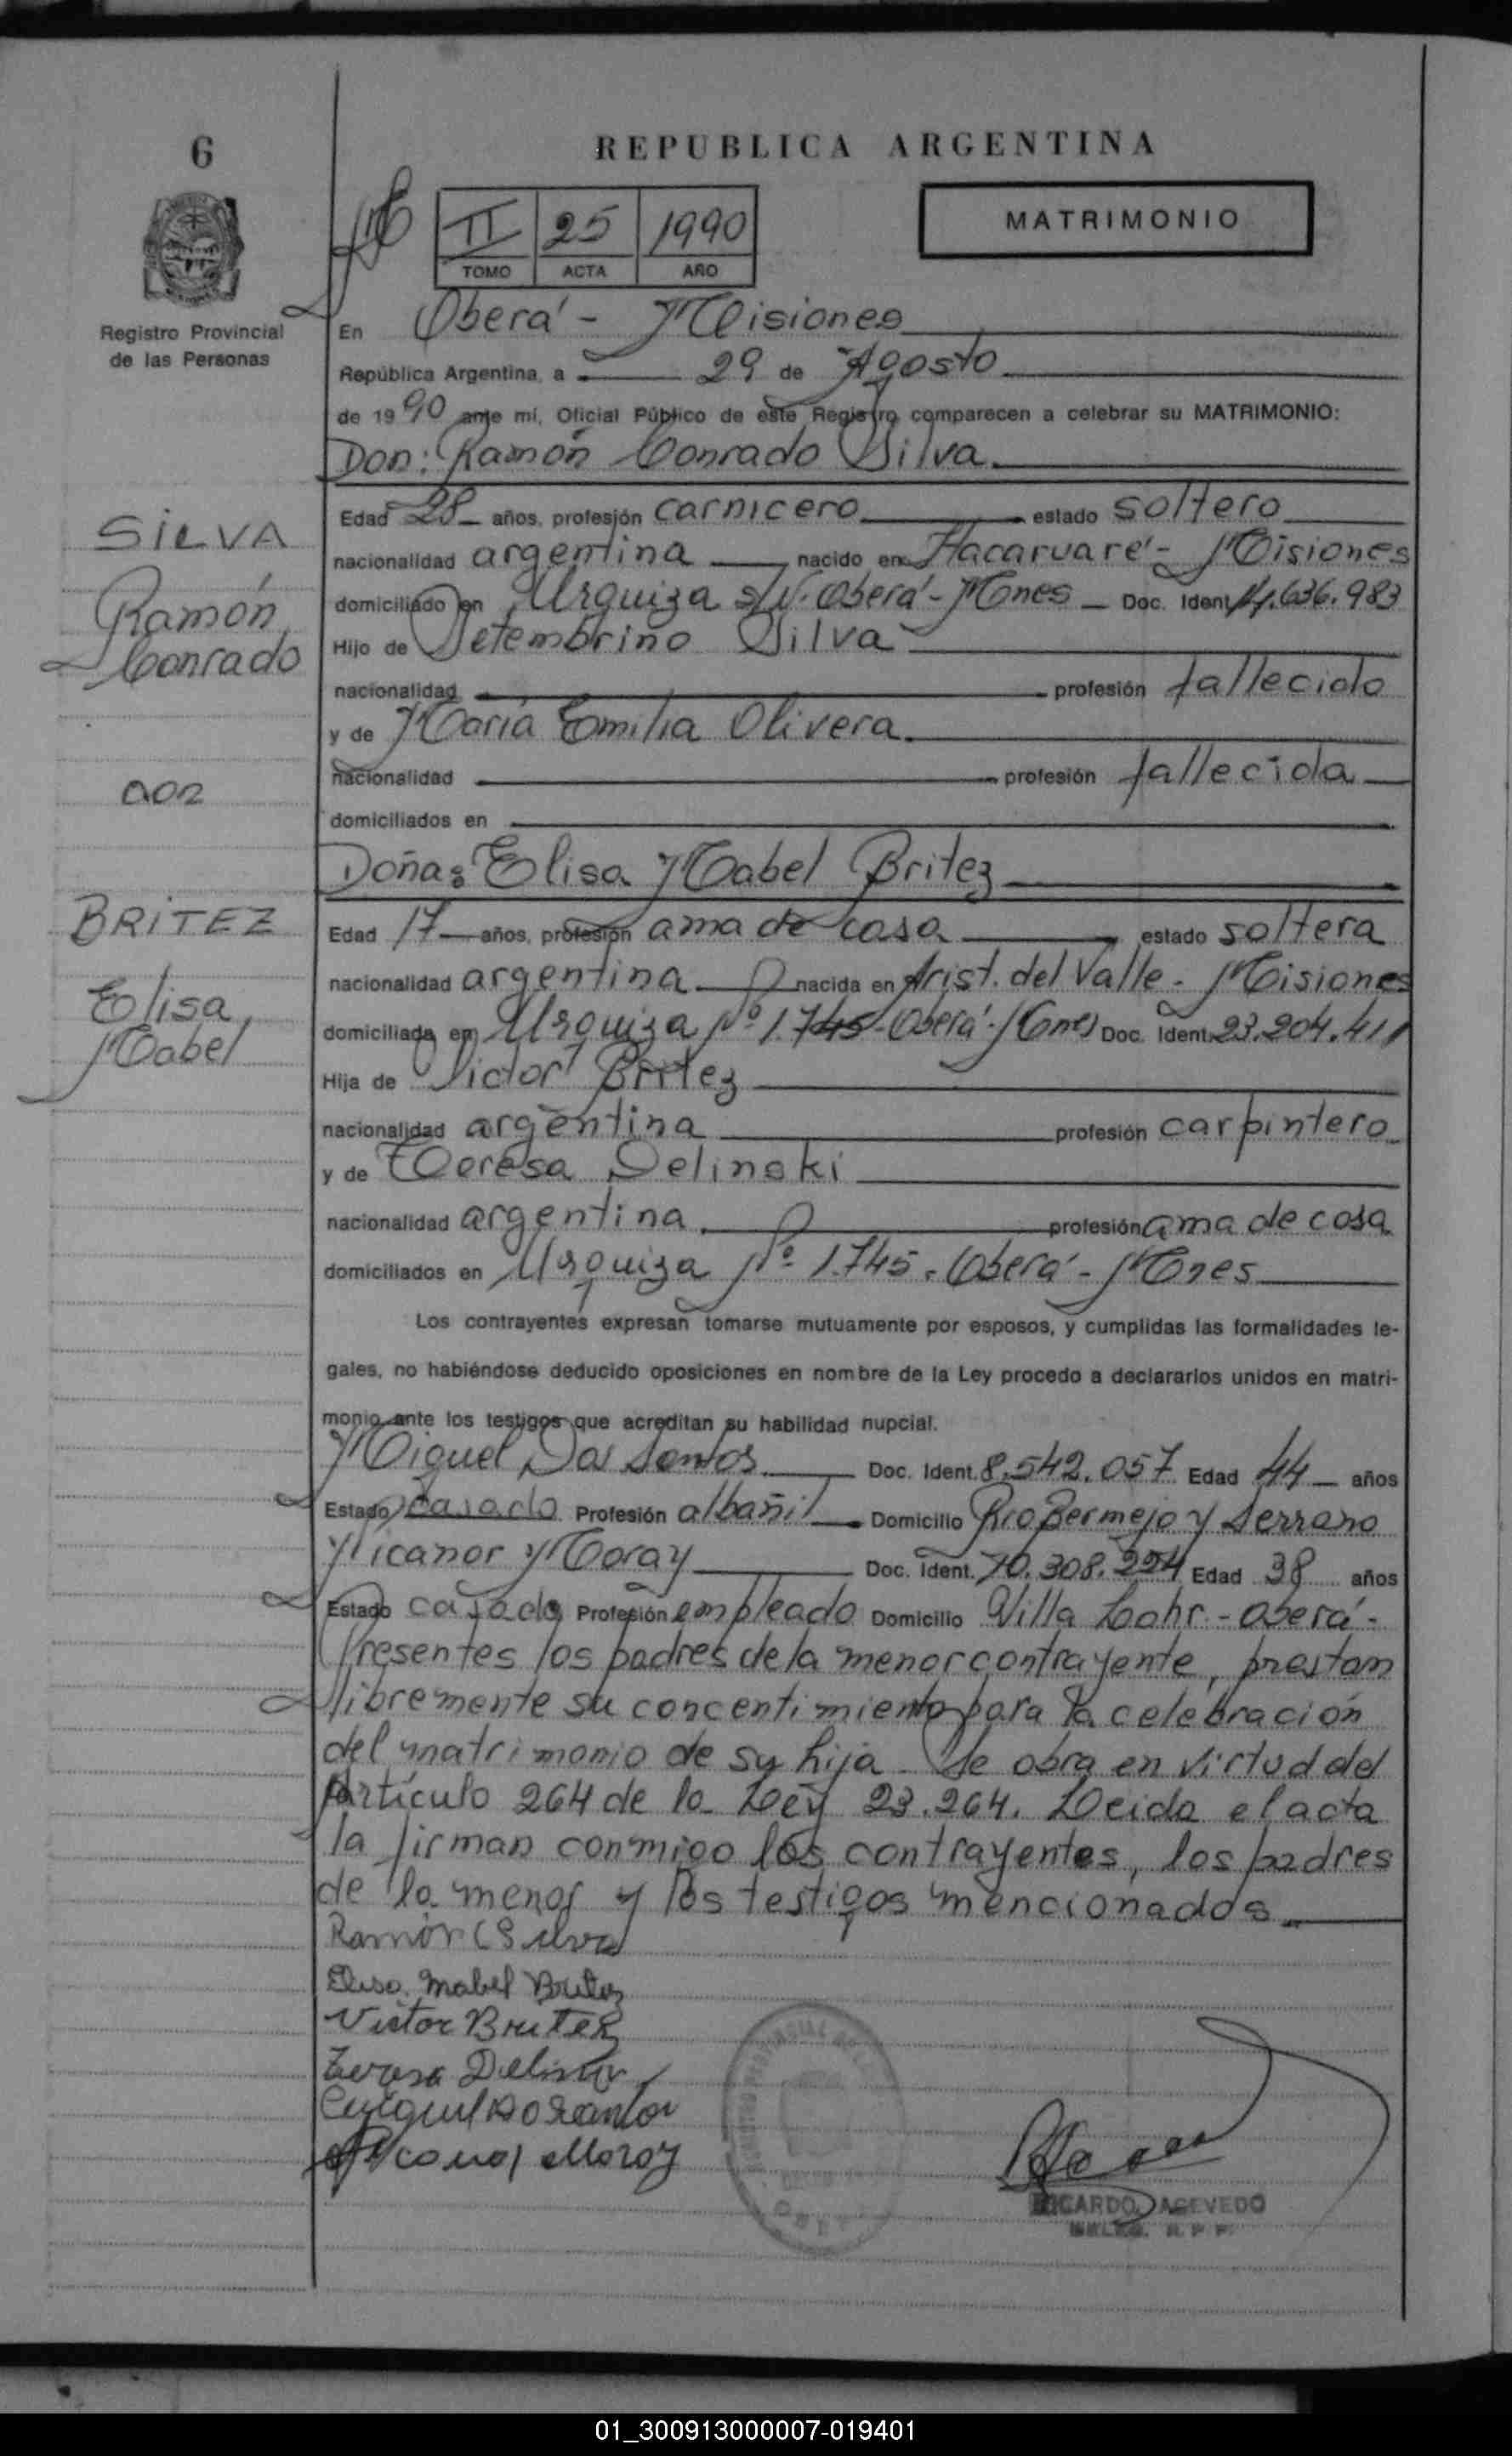 6
REPUBLICA ARGENTINA
II 25 1990
TOMO ACTA AÑO
MATRIMONIO
Registro Provincial
de las Personas
En Oberá - Misiones
República Argentina, a 29 de Agosto
de 1990 ante mí, Oficial Público de este Registro comparecen a celebrar su MATRIMONIO:
Don: Ramón Conrado Silva.
SILVA
Ramón
Conrado
con
BRITEZ
Elisa
Mabel
Edad 28 años, profesión carnicero estado soltero
nacionalidad argentina nacido en Itacaruaré - Misiones
domiciliado en Urquiza s/N. Oberá - Mnes Doc. Ident. 14.636.983
Hijo de Setembrino Silva
nacionalidad profesión fallecido
y de María Emilia Olivera.
nacionalidad profesión fallecida
domiciliados en
Doña: Elisa Mabel Britez
Edad 17 años, profesión ama de casa estado soltera
nacionalidad argentina nacida en Arist. del Valle - Misiones
domiciliada en Urquiza Nº 1.745 - Oberá - Mnes Doc. Ident. 23.204.411
Hija de Victor Britez
nacionalidad argentina profesión carpintero
y de Teresa Delinski
nacionalidad argentina. profesión ama de casa
domiciliados en Urquiza Nº 1.745 - Oberá - Mnes
Los contrayentes expresan tomarse mutuamente por esposos, y cumplidas las formalidades le-
gales, no habiéndose deducido oposiciones en nombre de la Ley procedo a declararlos unidos en matri-
monio ante los testigos que acreditan su habilidad nupcial.
Miguel Dos Santos Doc. Ident. 8.542.057 Edad 44 años
Estado casado Profesión albañil Domicilio Rio Bermejo y Serrano
Nicanor Moray Doc. Ident. 10.308.254 Edad 38 años
Estado casado Profesión empleado Domicilio Villa Lohr - Oberá -
Presentes los padres de la menor contrayente, prestan
libremente su concentimiento para la celebración
del matrimonio de su hija - Se obra en virtud del
Artículo 264 de la Ley 23.264. Leida el acta
la firman conmigo los contrayentes, los padres
de la menor y los testigos mencionados
Ramón C Silva
Elisa Mabel Britez
Victor Britez
Teresa
Miguel Dos Santos
Nicanor Moray
RICARDO ACEVEDO
01_300913000007-019401